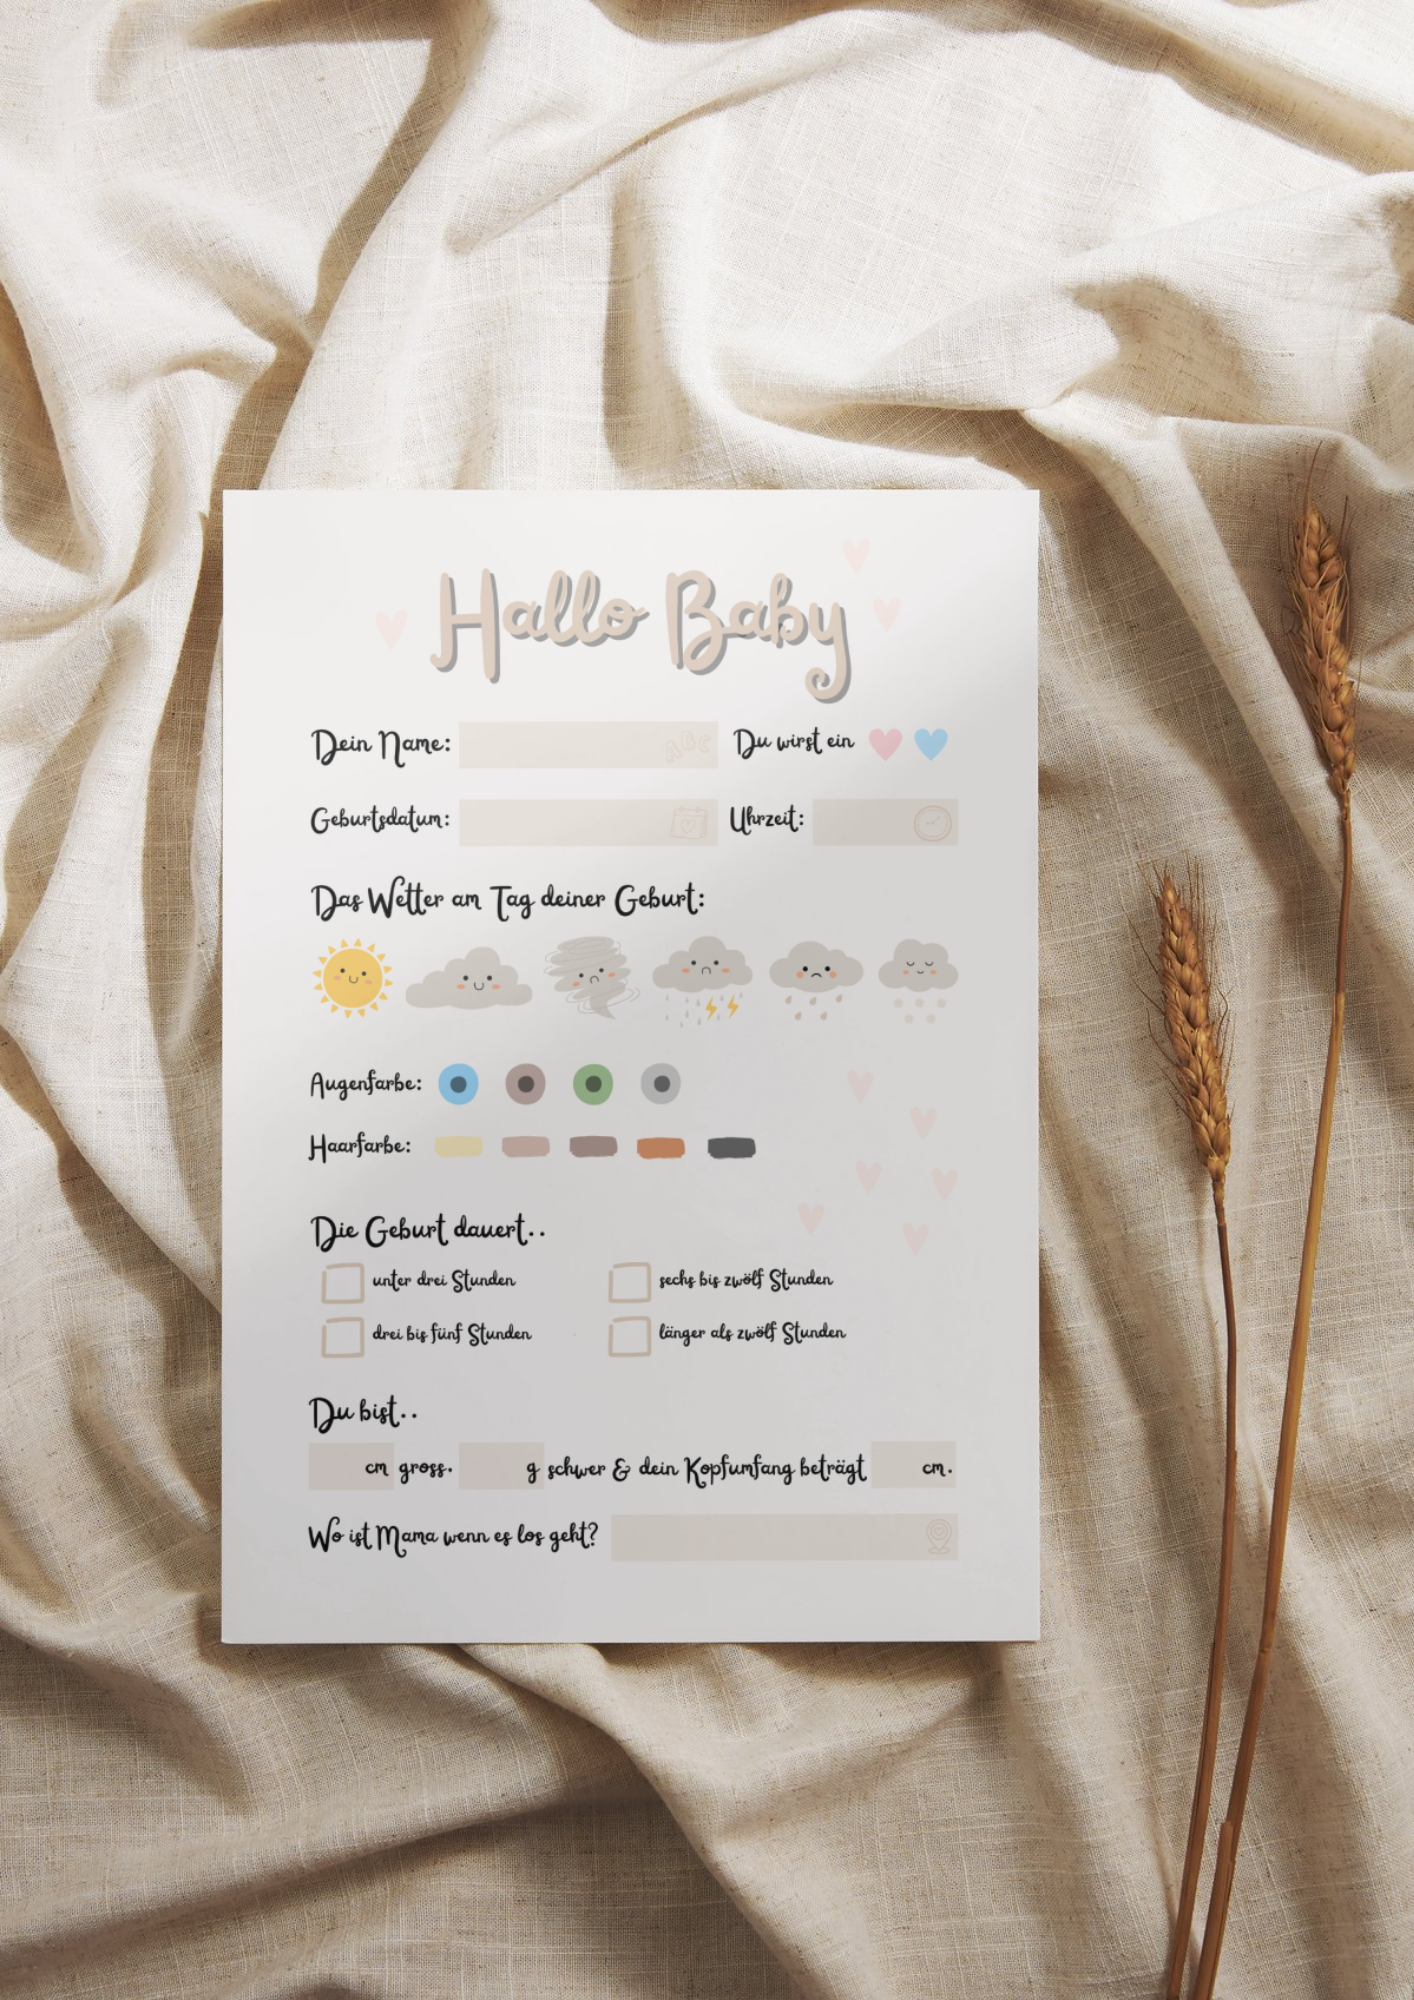 Hallo Baby
Dein Name: ABC Du wirst ein
Geburtsdatum: Uhrzeit:
Das Wetter am Tag deiner Geburt:
Augenfarbe:
Haarfarbe:
Die Geburt dauert..
unter drei Stunden sechs bis zwölf Stunden
drei bis fünf Stunden länger als zwölf Stunden
Du bist..
cm gross. g schwer & dein Kopfumfang beträgt cm.
Wo ist Mama wenn es los geht?